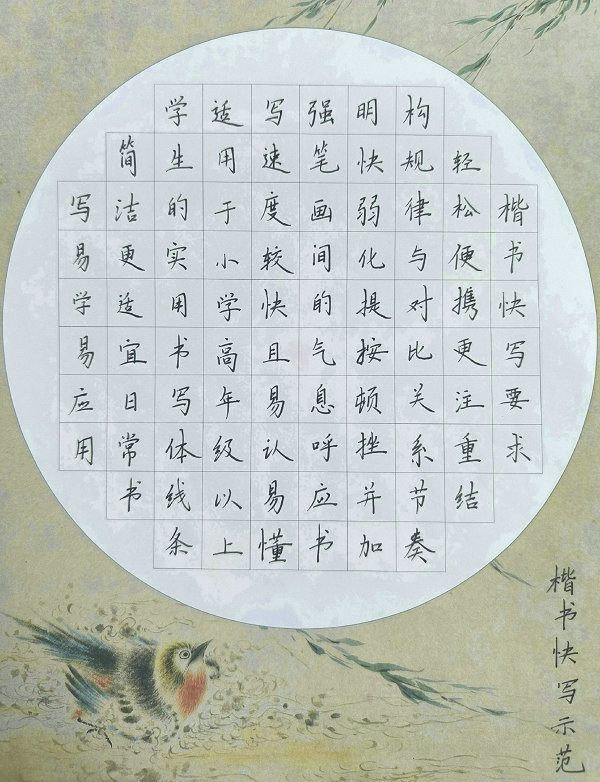 楷书快写要求
轻松便携更注重结
构规律与对比关系节奏
明快弱化提按顿挫并加
强笔画间的气息呼应书
写速度较快且易认易懂
适用于小学高年级以上
学生的实用书写体线条
简洁更适宜日常书
写易学易应用
楷书快写示范